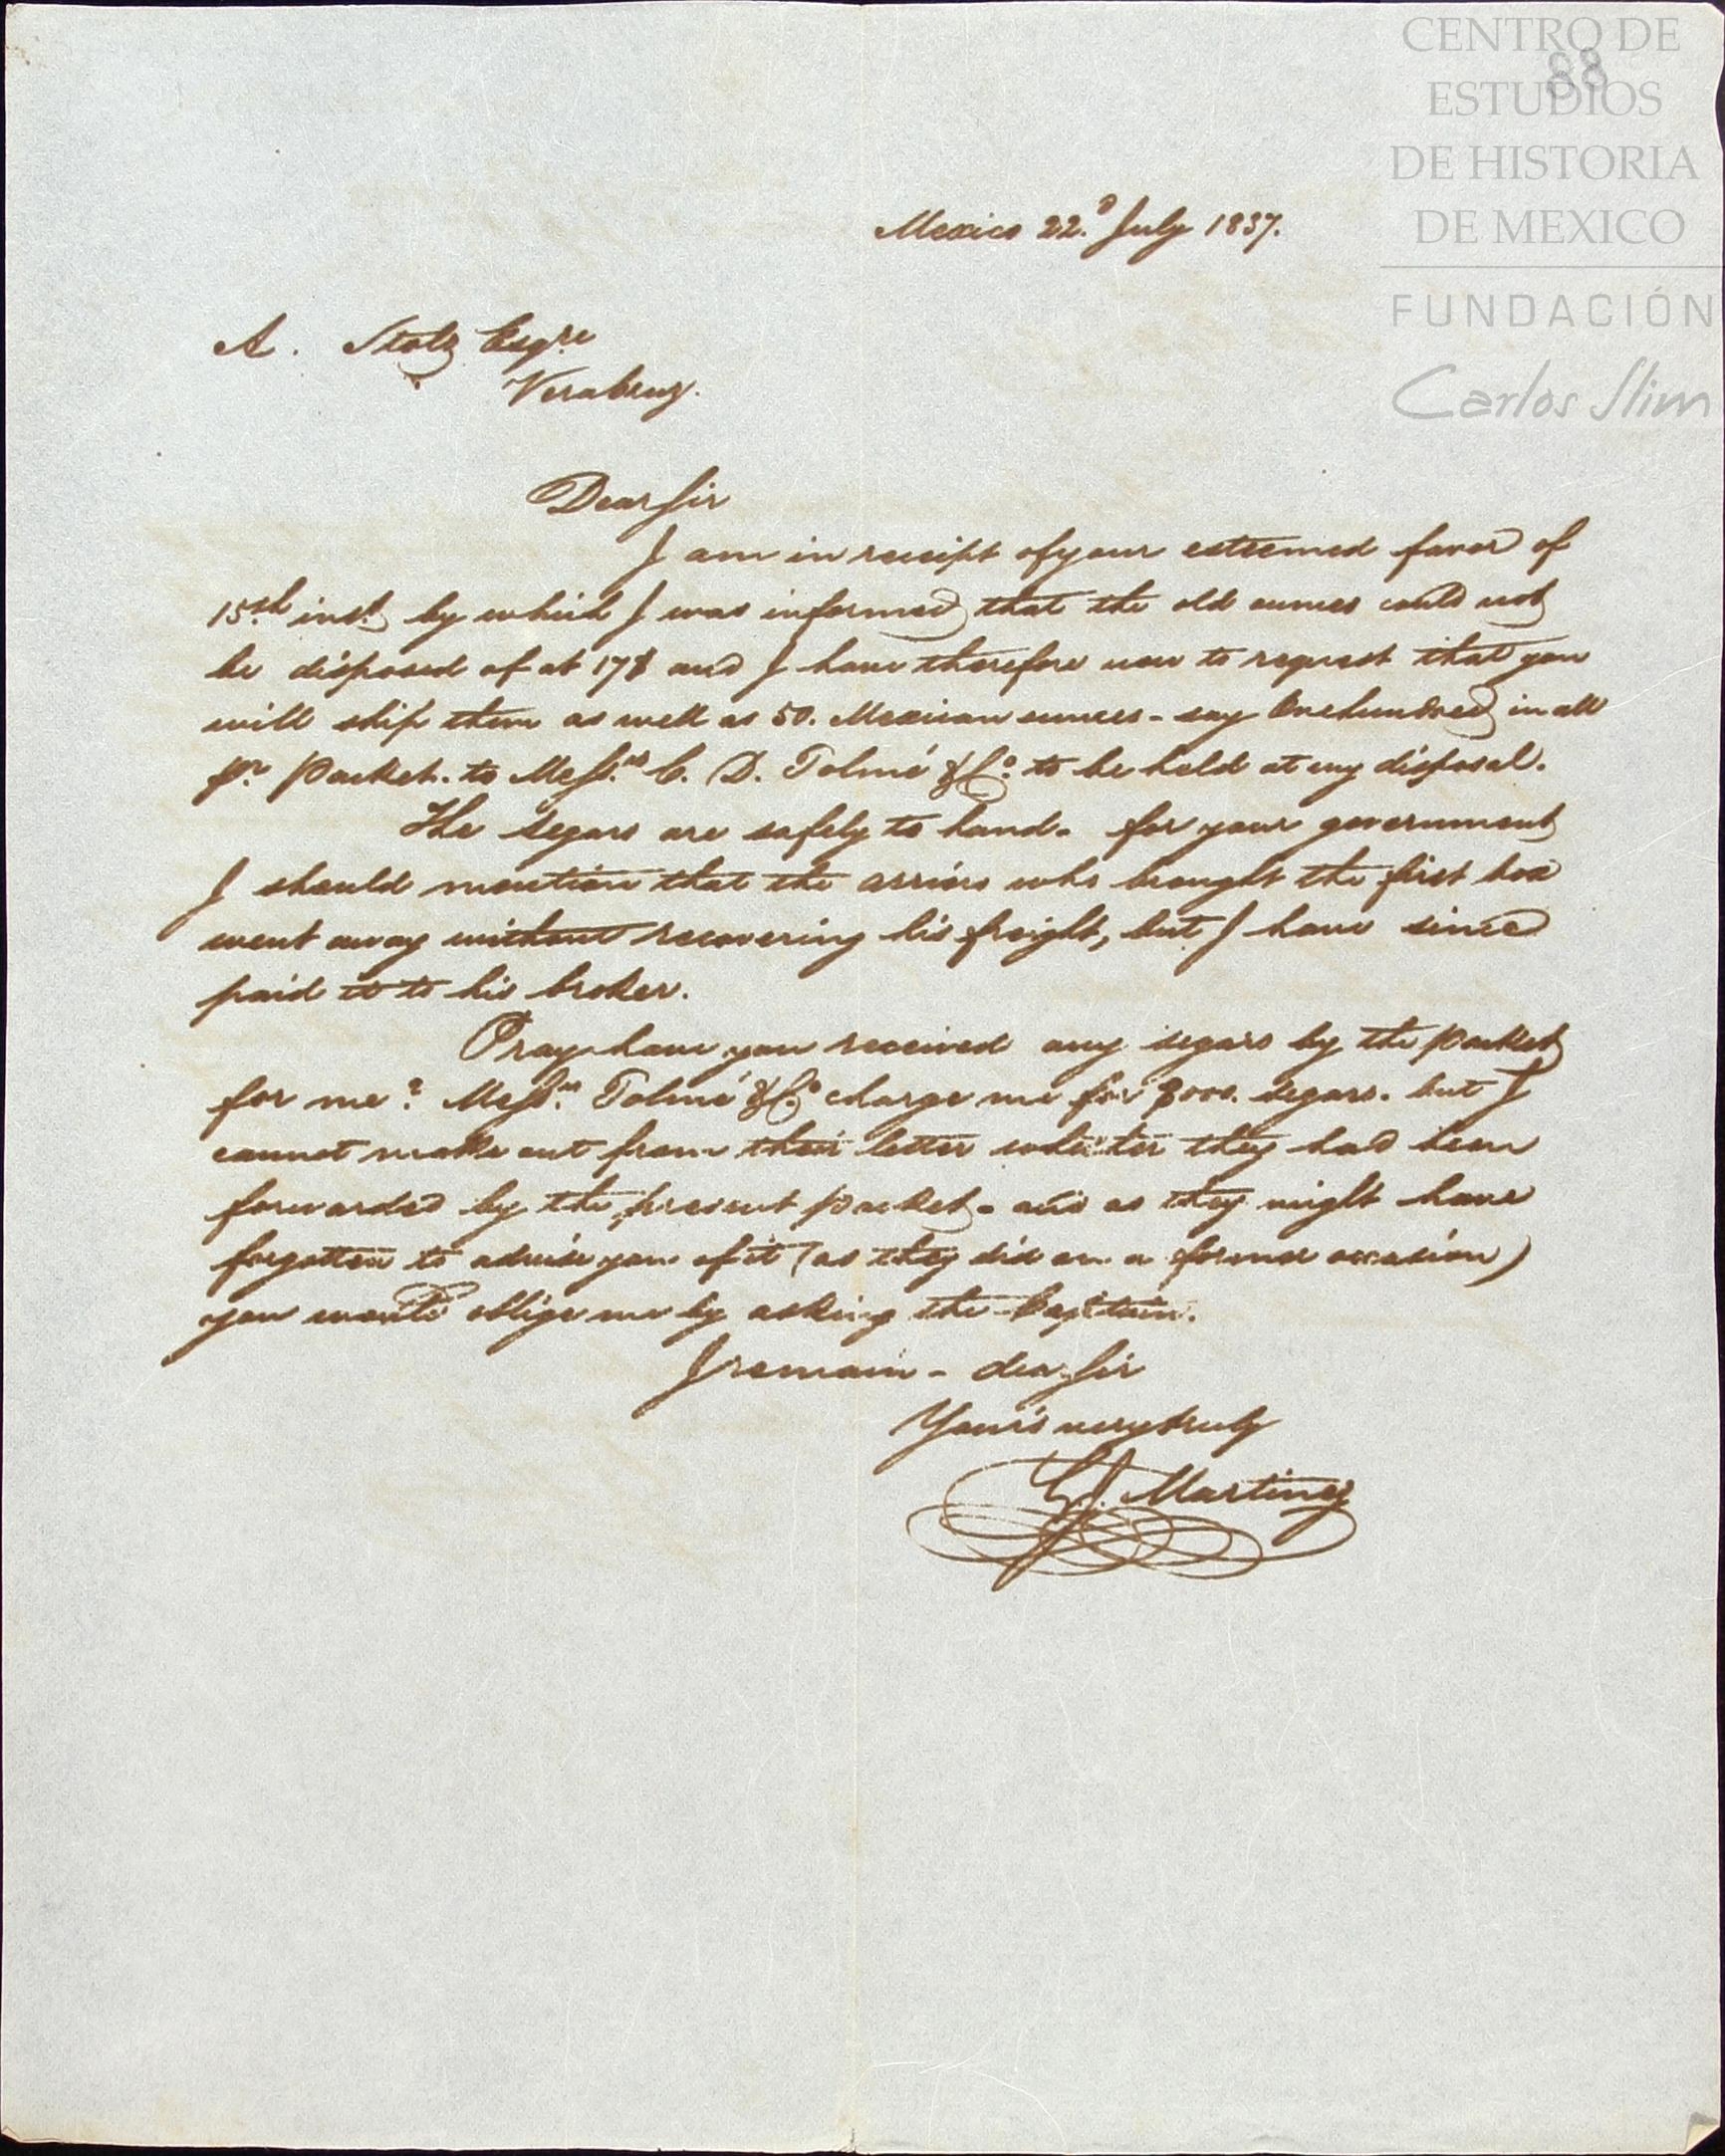 CENTRO DE
ESTUDIOS
DE HISTORIA
DE MEXICO
FUNDACIÓN
Carlos Slim
88
Mexico 22.d July 1837.
A. Stolz Esqre
VeraCruz.
Dear Sir
I am in receipt of your esteemed favor of
15th inst. by which I was informed that the old ounces could not
be disposed of at 17$ and I have therefore now to request that you
will ship them as well as 50. Mexican ounces - say Onehundred in all
pr. Packet. to Messrs C. D. Tolmé & Co. to be held at my disposal.
The segars are safely to hand. for your government
I should mention that the arriero who brought the first box
went away without recovering his freight, but I have since
paid it to his broker.
Pray have you received any segars by the packet
for me? Messrs. Tolmé & Co. charge me for 3000. segars. but I
cannot make out from their letter whether they had been
forwarded by the present packet - and as they might have
forgotten to advise you of it (as they did on a former occasion)
you would oblige me by asking the Captain.
I remain - dear Sir
Your's very truly
Martinez